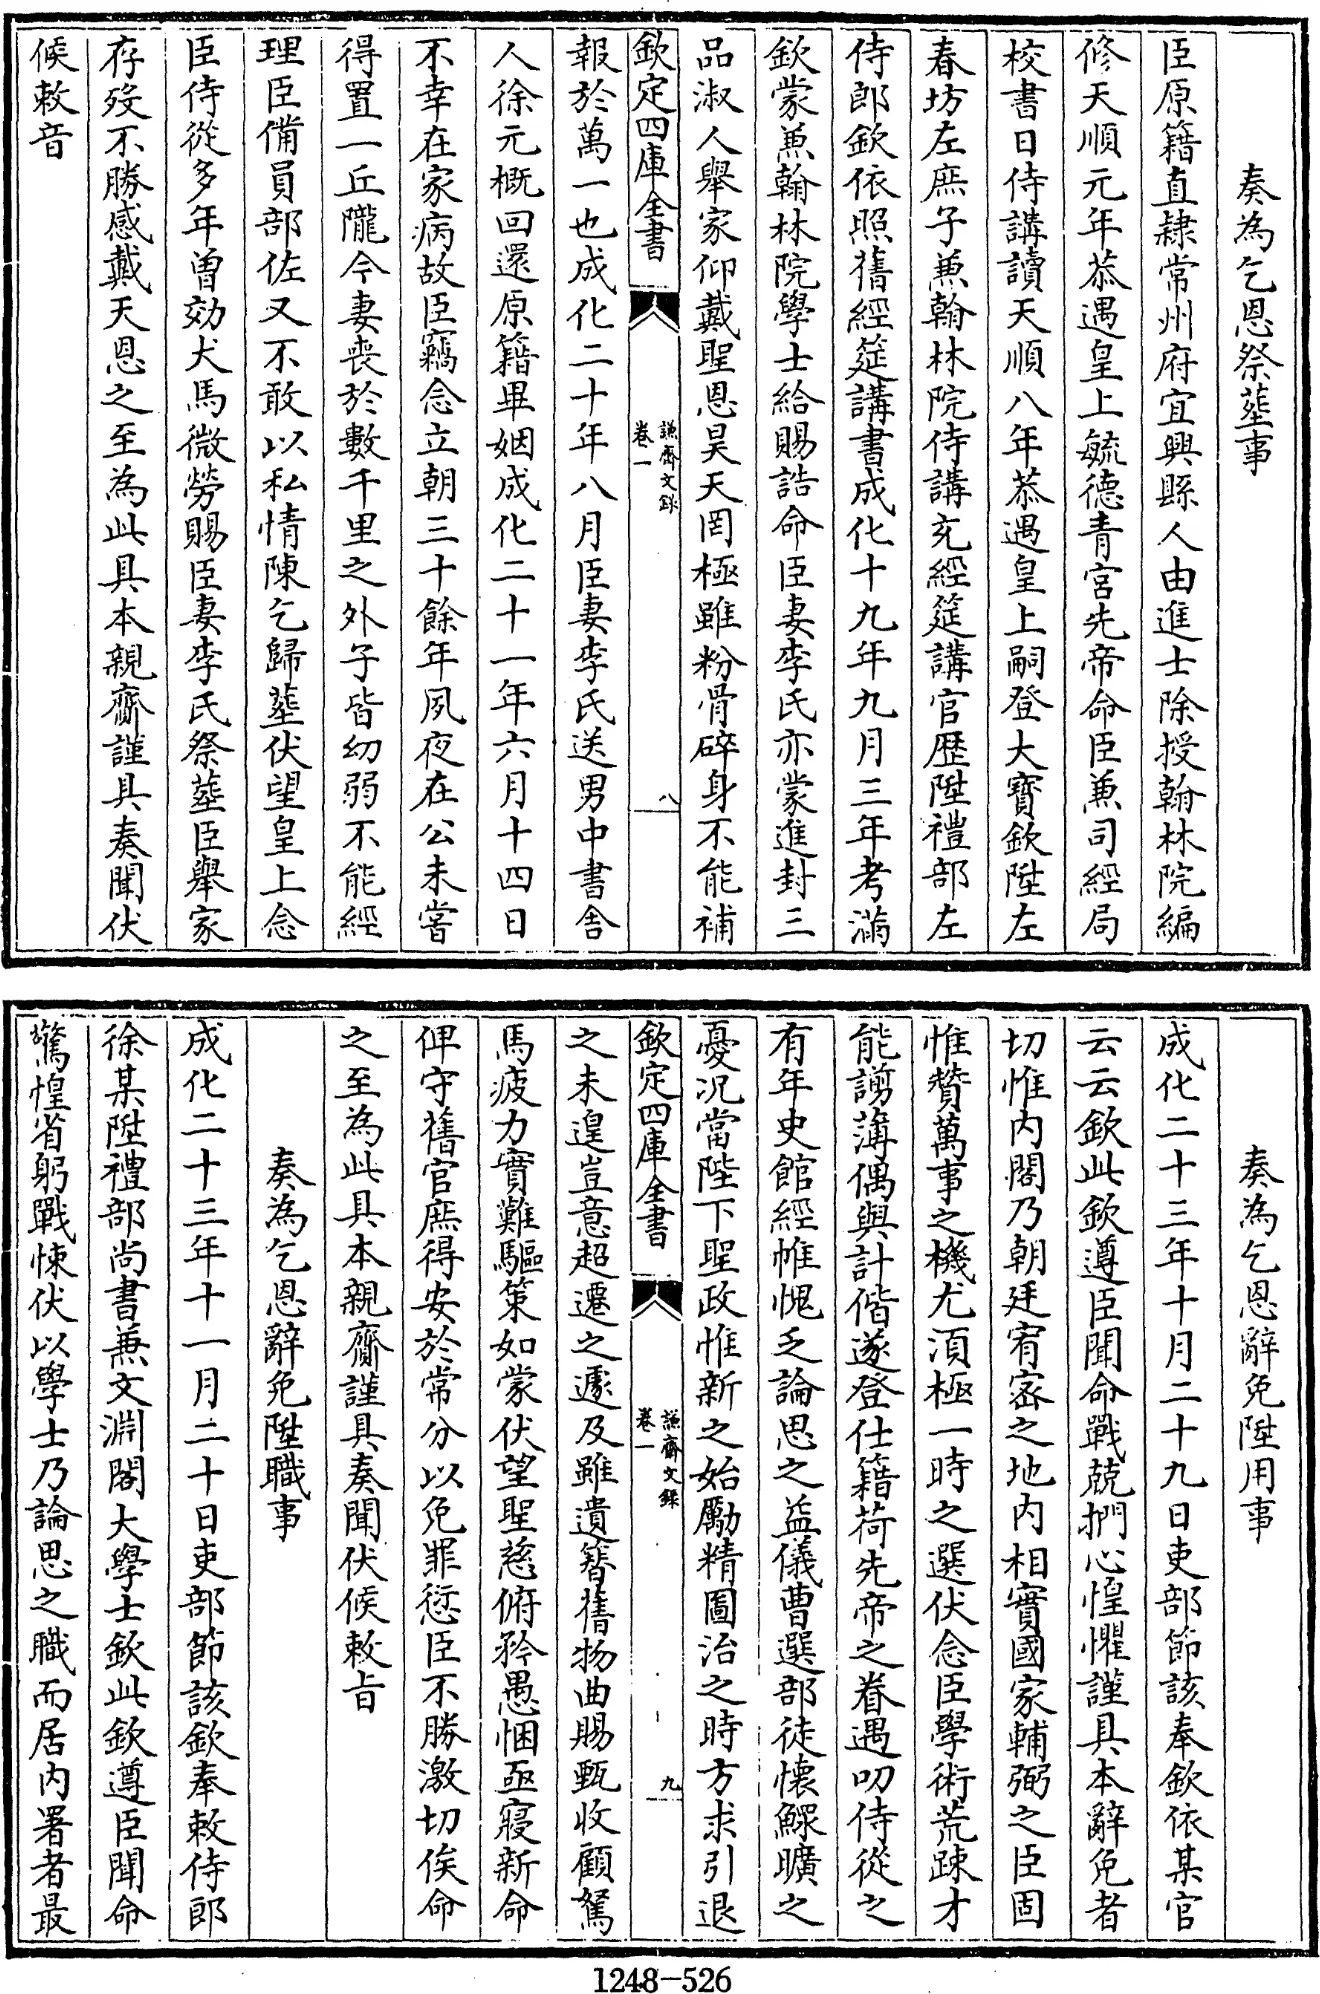 奏為乞恩祭塟事
臣原籍直隸常州府宜興縣人由進士除授翰林院編
修天順元年恭遇皇上毓德青宮先帝命臣兼司經局
校書日侍講讀天順八年恭遇皇上嗣登大寶欽陞左
春坊左庶子兼翰林院侍講充經筵講官歴陞禮部左
侍郎欽依照舊經筵講書成化十九年九月三年考滿
欽蒙兼翰林院學士給賜誥命臣妻李氏亦蒙進封三
品淑人舉家仰戴聖恩昊天罔極雖粉骨碎身不能補
欽定四庫全書
謙齋文録
卷一
八
報於萬一也成化二十年八月臣妻李氏送男中書舎
人徐元概回還原籍畢姻成化二十一年六月十四日
不幸在家病故臣竊念立朝三十餘年夙夜在公未嘗
得置一丘隴今妻喪於數千里之外子皆幼弱不能經
理臣備員部佐又不敢以私情陳乞歸塟伏望皇上念
臣侍從多年曽効犬馬微勞賜臣妻李氏祭塟臣舉家
存歿不勝感戴天恩之至為此具本親齎謹具奏聞伏
候敕音
奏為乞恩辭免陞用事
成化二十三年十月二十九日吏部節該奉欽依某官
云云欽此欽遵臣聞命戰兢捫心惶懼謹具本辭免者
切惟内閣乃朝廷宥宻之地内相實國家輔弼之臣固
惟贊萬事之機尤須極一時之選伏念臣學術荒疎才
能謭薄偶與計偕遂登仕籍荷先帝之眷遇叨侍從之
有年史館經帷愧乏論思之益儀曹選部徒懐鰥曠之
憂况當陛下聖政惟新之始勵精圖治之時方求引退
欽定四庫全書
謙齋文録
卷一
九
之未遑豈意超遷之遽及雖遺簪舊物曲賜甄收顧駑
馬疲力實難驅策如蒙伏望聖慈俯矜愚悃亟寢新命
俾守舊官庶得安於常分以免罪愆臣不勝激切俟命
之至為此具本親齎謹具奏聞伏候敕旨
奏為乞恩辭免陞職事
成化二十三年十一月二十日吏部節該欽奉敕侍郎
徐某陞禮部尚書兼文淵閣大學士欽此欽遵臣聞命
驚惶省躬戰悚伏以學士乃論思之職而居内署者最
1248-526